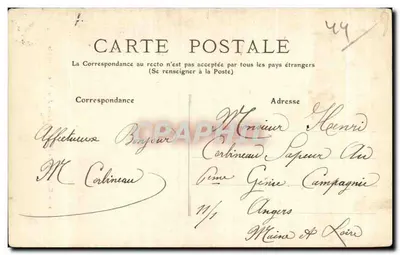 44
CARTE POSTALE
La Correspondance au recto n'est pas acceptée par tous les pays étrangers
(Se renseigner à la Poste)
Correspondance
Affectueux Bonjour
M Corbineau
Adresse
Monsieur Henri
Corbineau Sapeur Au
6ème Génie Compagnie
11/1
Angers
Maine et Loire